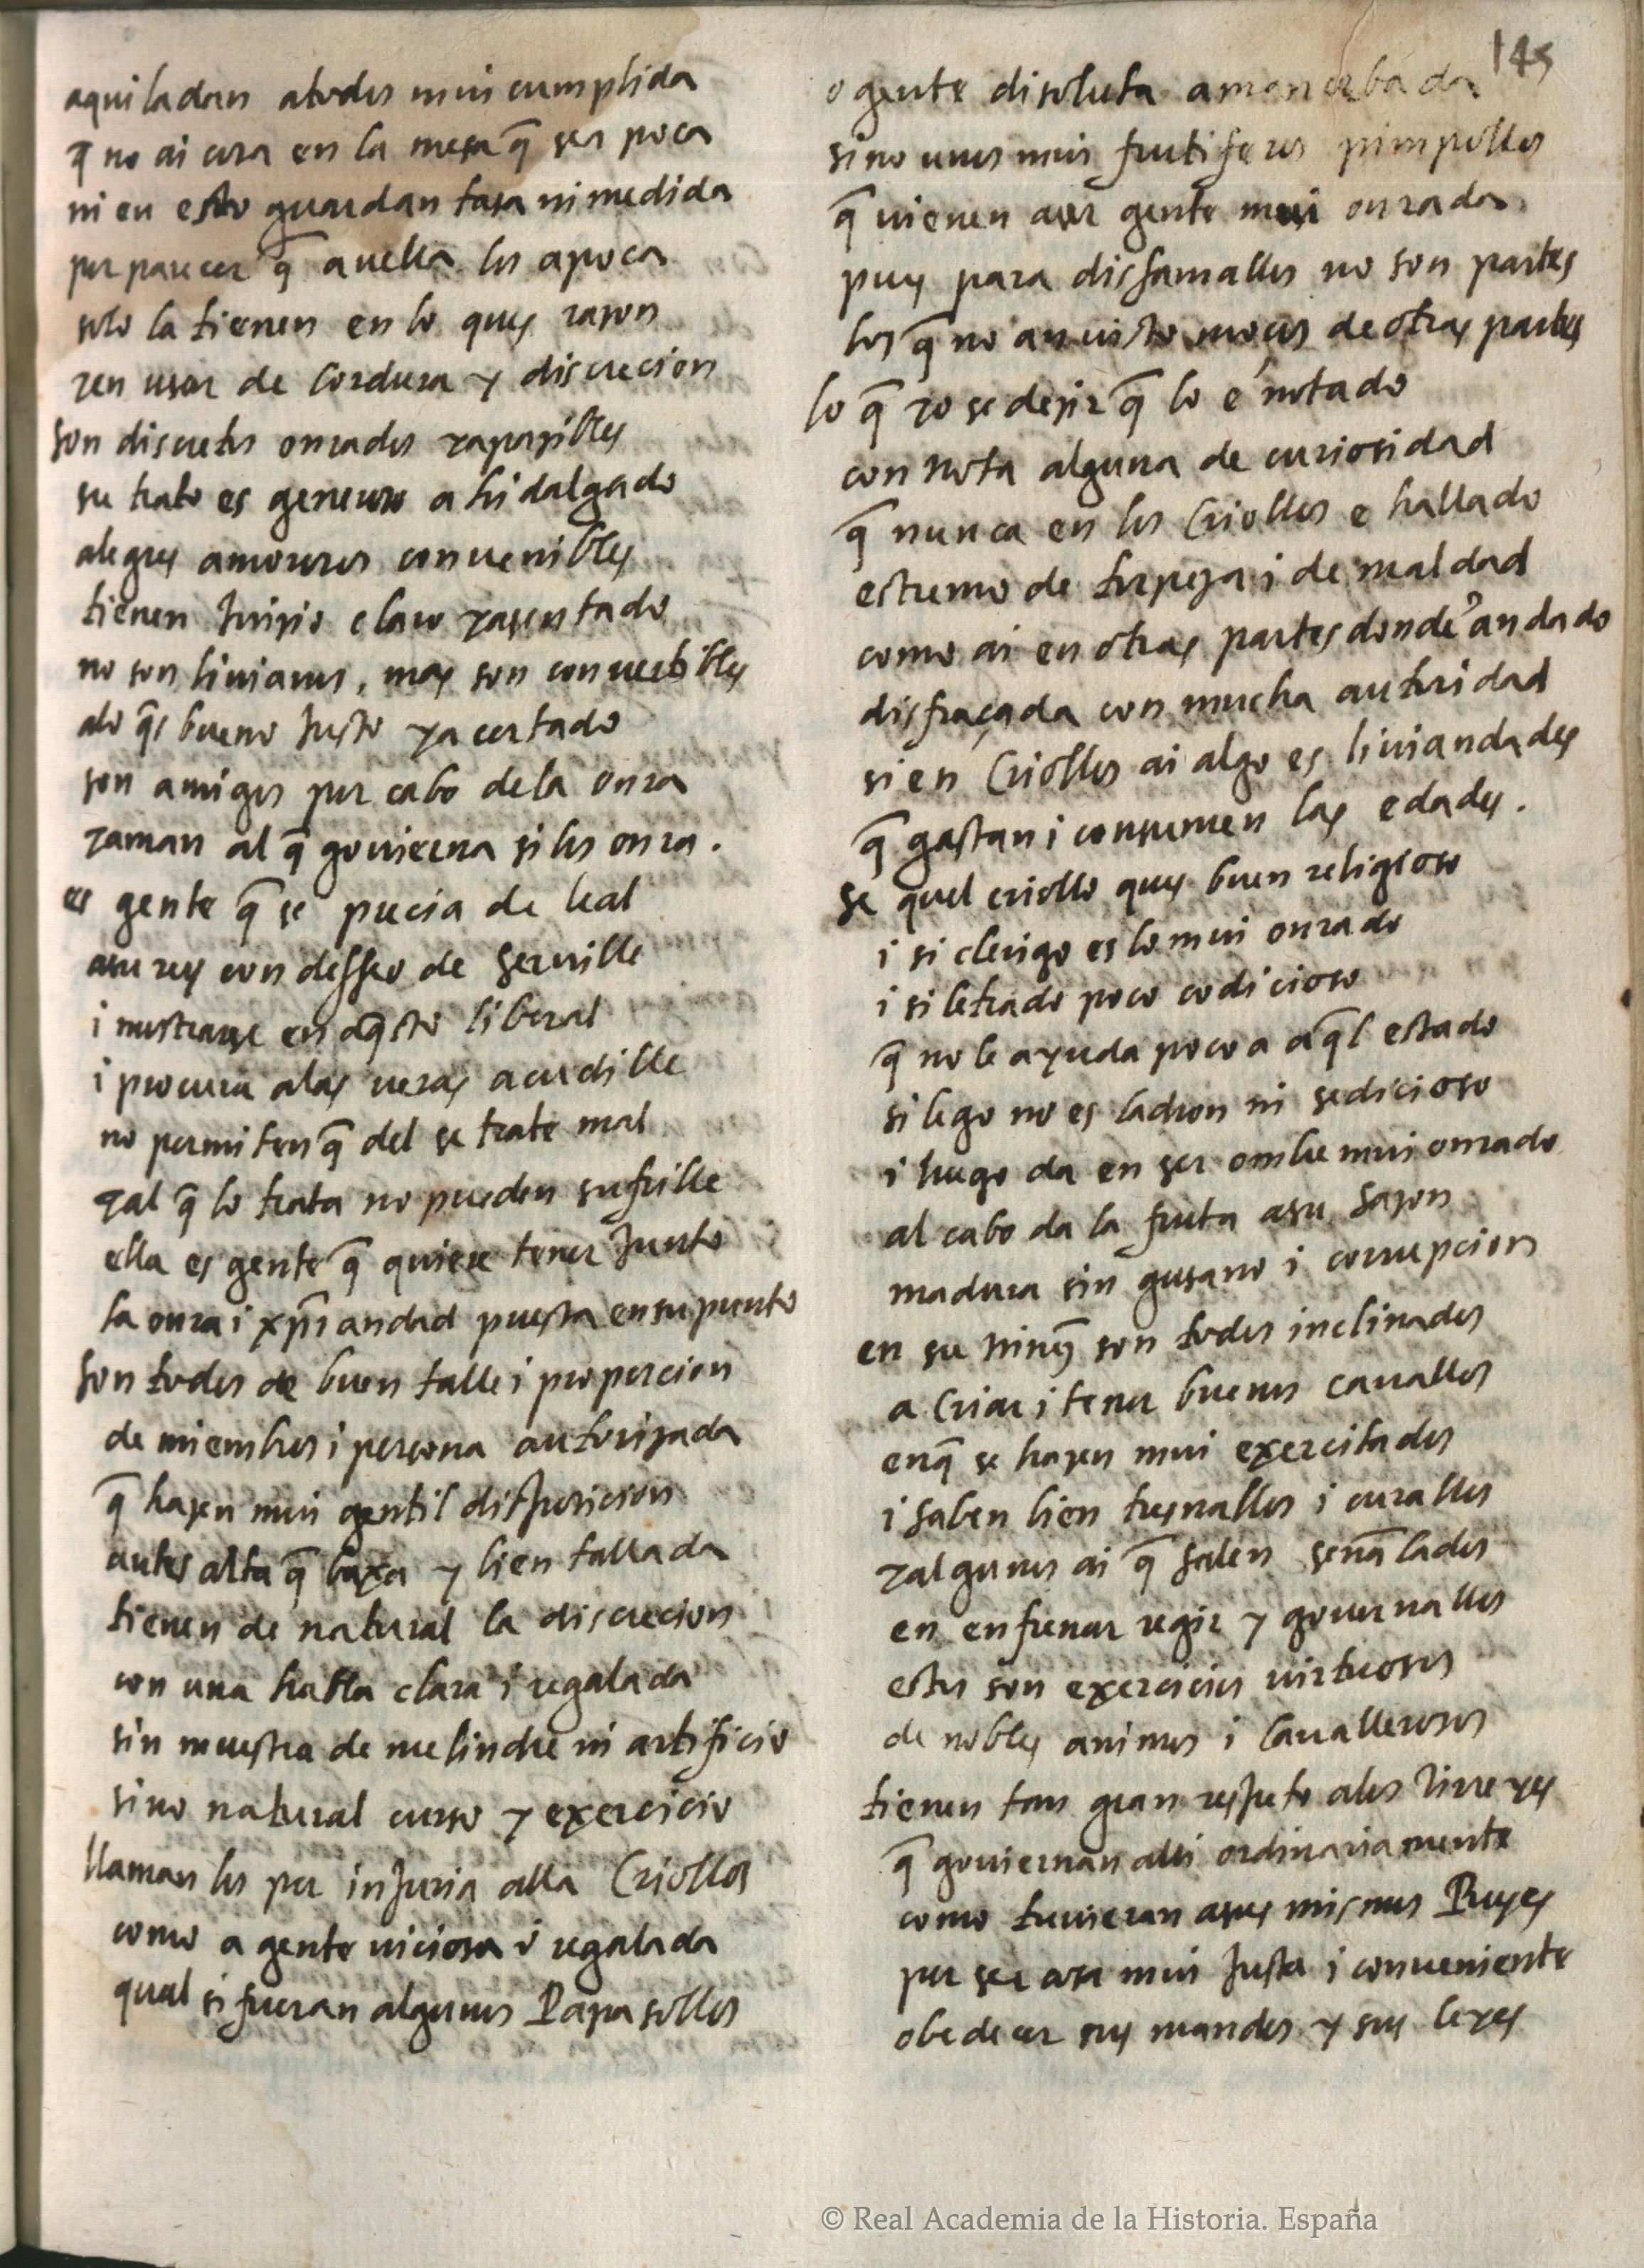 145
aqui la dan a todos mui cumplida
q̃ no ai cosa en la mesa q̃ sea poca
ni en esto guardan tasa ni medida
por parecer q̃ aquella los apoca
solo la tienen en lo ques razon
y en usar de cordura y discrecion
son discretos onrados y apazibles
su trato es generoso ahidalgado
alegres amorosos convenibles
tienen Juizio claro y asentado
no son livianos, mas son convertibles
a lo q̃s bueno Justo y acertado
son amigos por cabo de la onra
y aman al q̃ govierna si los onra.
es gente q̃ se precia de leal
a su rey con desseo de serville
i mostrarse en aq̃sto liberal
i procura a las veras acudille
no permiten q̃ del se trate mal
y al q̃ lo trata no pueden sufrille
ella es gente q̃ quiere tener Junto
la onra i xp̃iandad puesta en su punto
son todos de buen talle i proporcion
de miembros i persona autorizada
q̃ hazen mui gentil disposicion
antes alta q̃ baxa y bien tallada
tienen de natural la discrecion
con una habla clara i regalada
sin muestra de melindre ni artificio
sino natural curso y exercicio
llaman los por inJuria alla Criollos
como a gente viciosa i regalada
qual si fueran algunos Papasollos
o gente disoluta amancebada
sino unos mui frutiferos pimpollos
q̃ vienen a ser gente mui onrada
pues para disfamallos no son partes
los q̃ no an visto mocos de otras partes
lo q̃ yo se dezir q̃ lo é notado
con nota alguna de curiosidad
q̃ nunca en los Criollos e hallado
estremo de torpeza i de maldad
como ai en otras partes donde andado
disfraçada con mucha autoridad
si en Criollos ai algo es liviandades
q̃ gastan i consumen las edades.
se quel criollo ques buen religioso
i si clerigo es lo mui onrado
i si letrado poco codicioso
q̃ no le ayuda poco a aq̃l estado
si lego no es ladron ni sedicioso
i luego da en ser ombre mui onrado
al cabo da la fruta a su sazon
madura sin gusano i corrupcion
en su niñez son todos inclinados
a Criar i tener buenos cavallos
en q̃ se hazen mui exercitados
i saben bien tresnallos i curallos
y algunos ai q̃ salen señalados
en enfrenar regir y governallos
estos son exercicios virtuosos
de nobles animos i Cavallerosos
tienen tan gran respeto a los Virreyes
q̃ goviernan alli ordinariamente
como tuvieran a sus mismos Reyes
por ser cosa mui Justa i conveniente
obedecer sus mandos y sus leyes
© Real Academia de la Historia. España